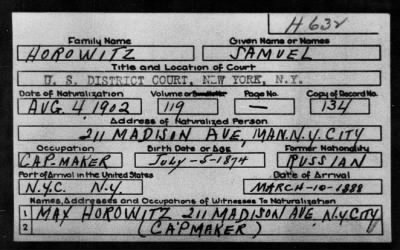 H632
Family Name Given Name or Names
HOROWITZ SAMUEL
Title and Location of Court
U. S. DISTRICT COURT, NEW YORK, N.Y.
Date of Naturalization Volume or Page No. Copy of Record No.
AUG. 4. 1902 119 — 134
Address of Naturalized Person
211 MADISON AVE, MAN. N.Y. CITY
Occupation Birth Date or Age Former Nationality
CAP-MAKER July-5-1874 RUSSIAN
Port of Arrival in the United States Date of Arrival
N.Y.C. N.Y. MARCH-10-1888
Names, Addresses and Occupations of Witnesses To Naturalization
1 MAX HOROWITZ 211 MADISON AVE N.Y. CITY
2 (CAPMAKER)